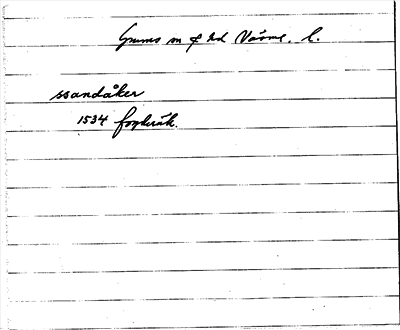 Grums sn o hd Värml. l.
ssandåker
1534 fogderäk.